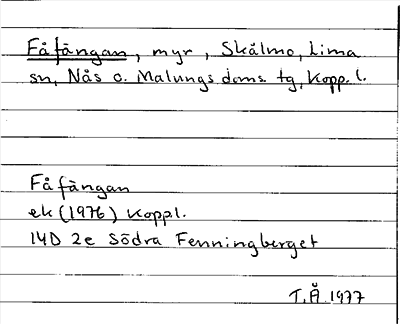 Fåfängan, myr, Skålmo, Lima
sn, Nås o. Malungs doms. tg, Kopp. l.
Fåfängan
ek (1976) Koppl.
14D 2e Södra Fenningberget
T.Å 1977